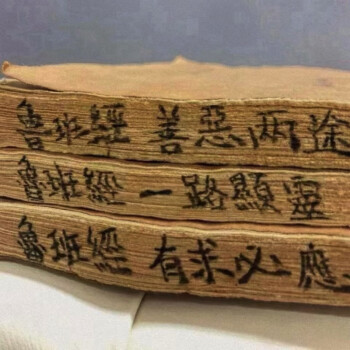 魯班經 善惡兩途
魯班經 一路顯靈
魯班經 有求必應